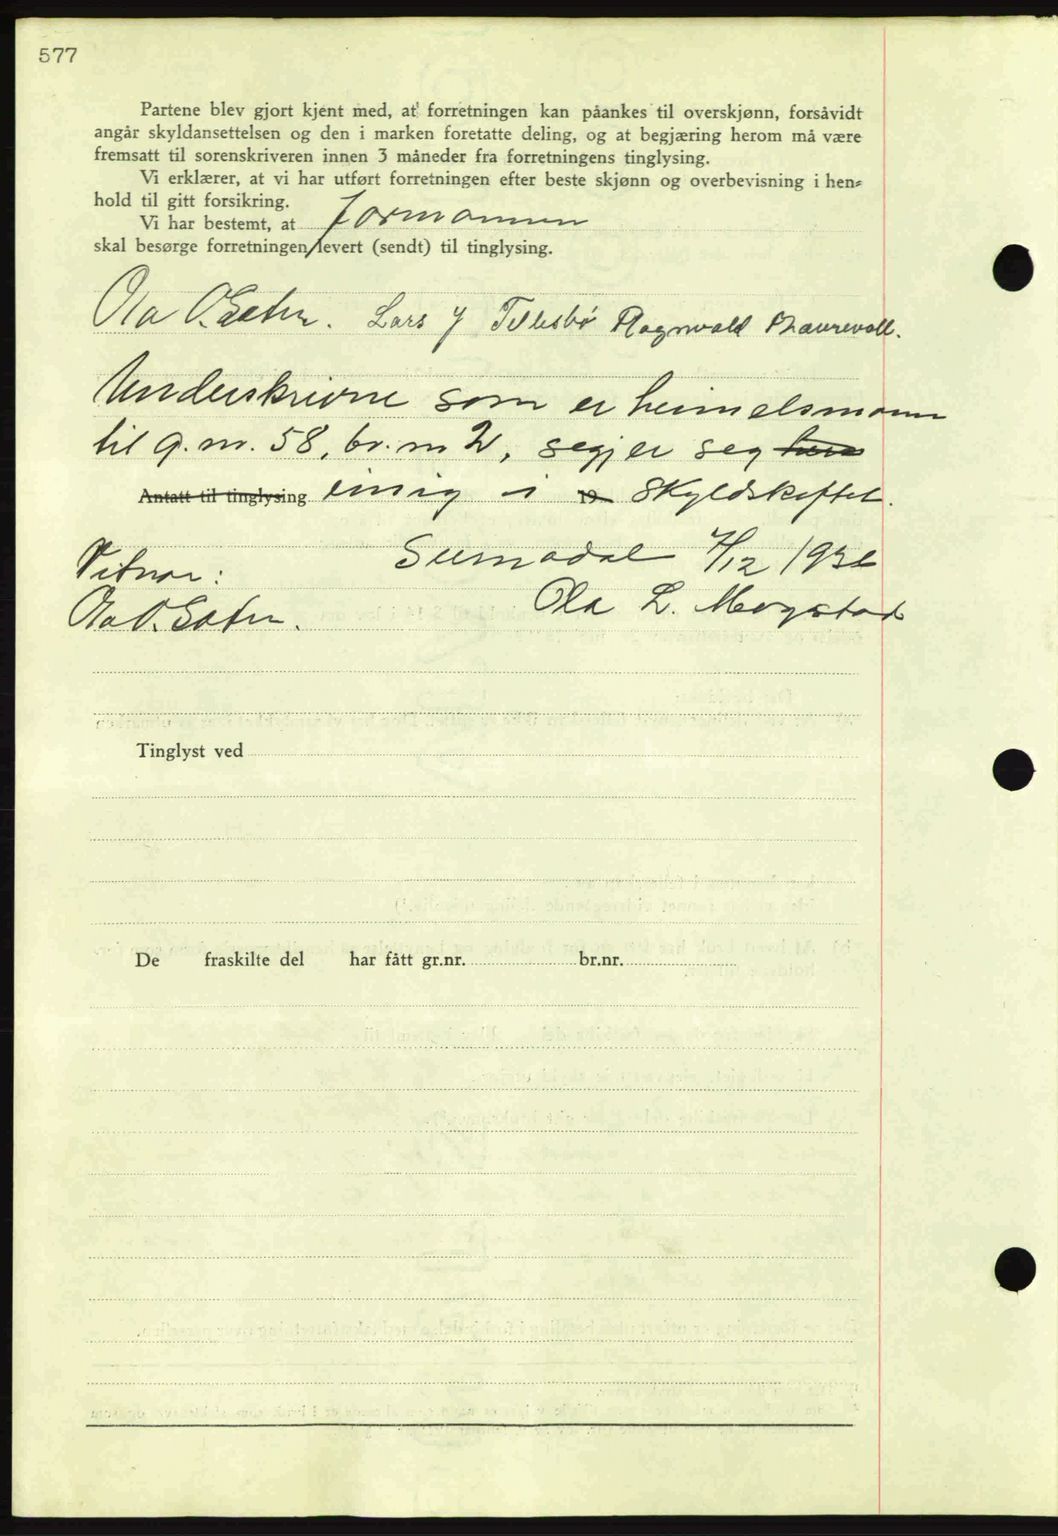 577
Partene blev gjort kjent med, at forretningen kan påankes til overskjønn, forsåvidt
angår skyldansettelsen og den i marken foretatte deling, og at begjæring herom må være
fremsatt til sorenskriveren innen 3 måneder fra forretningens tinglysing.
Vi erklærer, at vi har utført forretningen efter beste skjønn og overbevisning i hen-
hold til gitt forsikring.
Vi har bestemt, at formannen
skal besørge forretningen levert (sendt) til tinglysing.
Ola O. Sæter. Lars J Tellesbø Ragnvald
Underskrivne som er heimelsmann
til g.nr. 58, br.nr 2, segjer seg
Antatt til tinglysing einig i 19 skyldskiftet.
Vitnar: Surnadal 7/12 1936
Ola O. Sæter. Ola L. Mogstad
Tinglyst ved
De fraskilte del har fått gr.nr. br.nr.